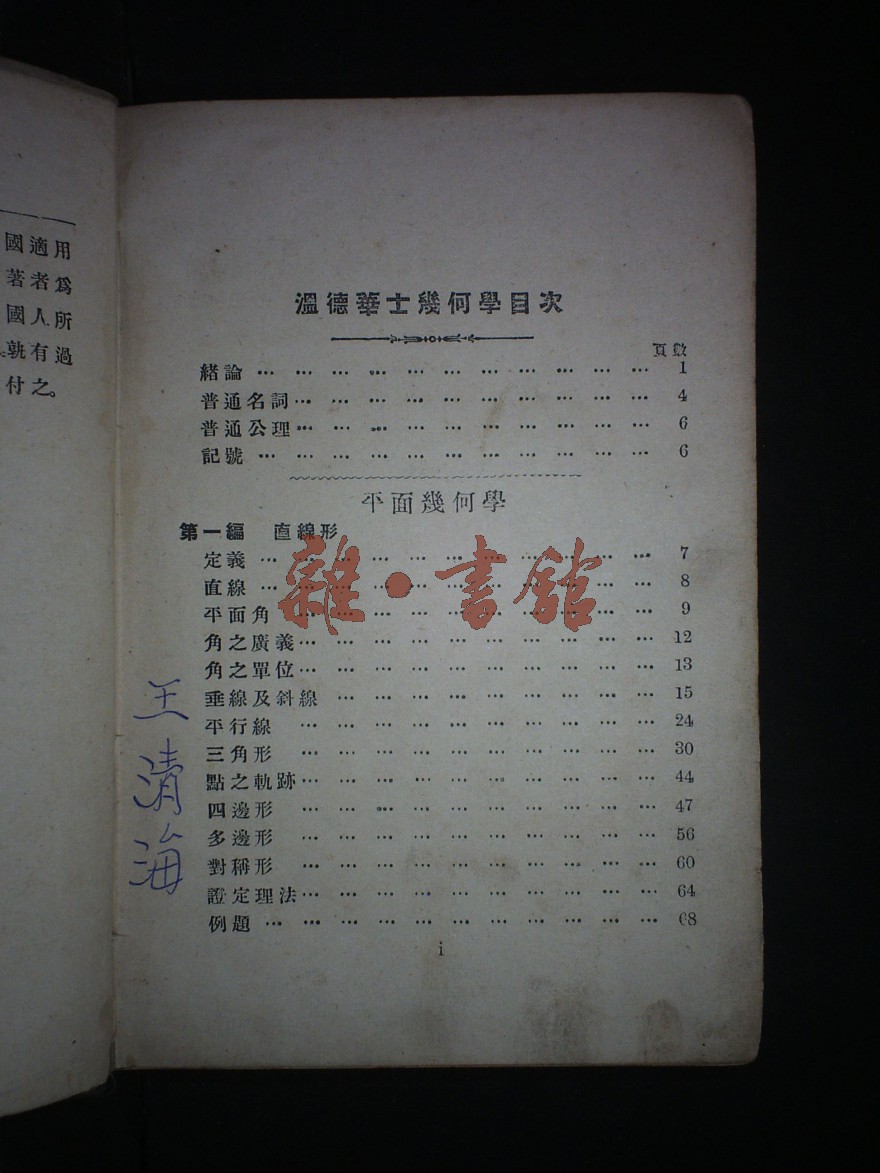 用為所過
適者人有之。
國著國孰付
溫德華士幾何學目次
頁數
緒論 … … … … … … … … … … … 1
普通名詞… … … … … … … … … … 4
普通公理… … … … … … … … … … 6
記號 … … … … … … … … … … … 6
平面幾何學
第一編 直線形
定義 … … … … … … … … … … … 7
直線 … … … … … … … … … … … 8
平面角 … … … … … … … … … … 9
角之廣義… … … … … … … … … … 12
角之單位… … … … … … … … … … 13
垂線及斜線 … … … … … … … … … 15
平行線 … … … … … … … … … … 24
三角形 … … … … … … … … … … 30
點之軌跡… … … … … … … … … … 44
四邊形 … … … … … … … … … … 47
多邊形 … … … … … … … … … … 56
對稱形 … … … … … … … … … … 60
證定理法… … … … … … … … … … 64
例題 … … … … … … … … … … … 68
i
王清海
雜·書館